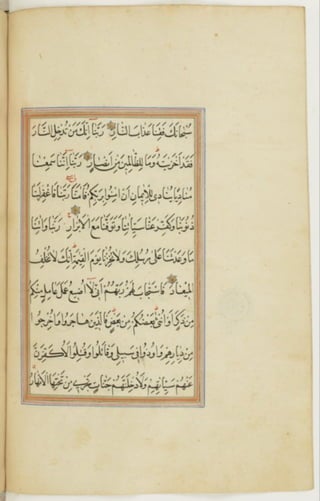 سُبْحَانَكَ فَقِنَا عَذَابَ النَّارِ رَبَّنَا إِنَّكَ مَنْ تُدْخِلِ النَّارَ
فَقَدْ أَخْزَيْتَهُ وَمَا لِلظَّالِمِينَ مِنْ أَنْصَارٍ رَبَّنَا إِنَّنَا سَمِعْنَا
مُنَادِيًا يُنَادِي لِلْإِيمَانِ أَنْ آمِنُوا بِرَبِّكُمْ فَآمَنَّا رَبَّنَا فَاغْفِرْ لَنَا
ذُنُوبَنَا وَكَفِّرْ عَنَّا سَيِّئَاتِنَا وَتَوَفَّنَا مَعَ الْأَبْرَارِ رَبَّنَا وَآتِنَا
مَا وَعَدْتَنَا عَلَى رُسُلِكَ وَلَا تُخْزِنَا يَوْمَ الْقِيٰمَةِ إِنَّكَ لَا تُخْلِفُ
الْمِيعَادَ فَاسْتَجَابَ لَهُمْ رَبُّهُمْ أَنِّي لَا أُضِيعُ عَمَلَ عَامِلٍ مِنْكُمْ
مِنْ ذَكَرٍ أَوْ أُنْثَى بَعْضُكُمْ مِنْ بَعْضٍ فَالَّذِينَ هَاجَرُوا وَأُخْرِجُوا
مِنْ دِيَارِهِمْ وَأُوذُوا فِي سَبِيلِي وَقَاتَلُوا وَقُتِلُوا لَأُكَفِّرَنَّ
عَنْهُمْ سَيِّئَاتِهِمْ وَلَأُدْخِلَنَّهُمْ جَنَّاتٍ تَجْرِي مِنْ تَحْتِهَا الْأَنْهَارُ